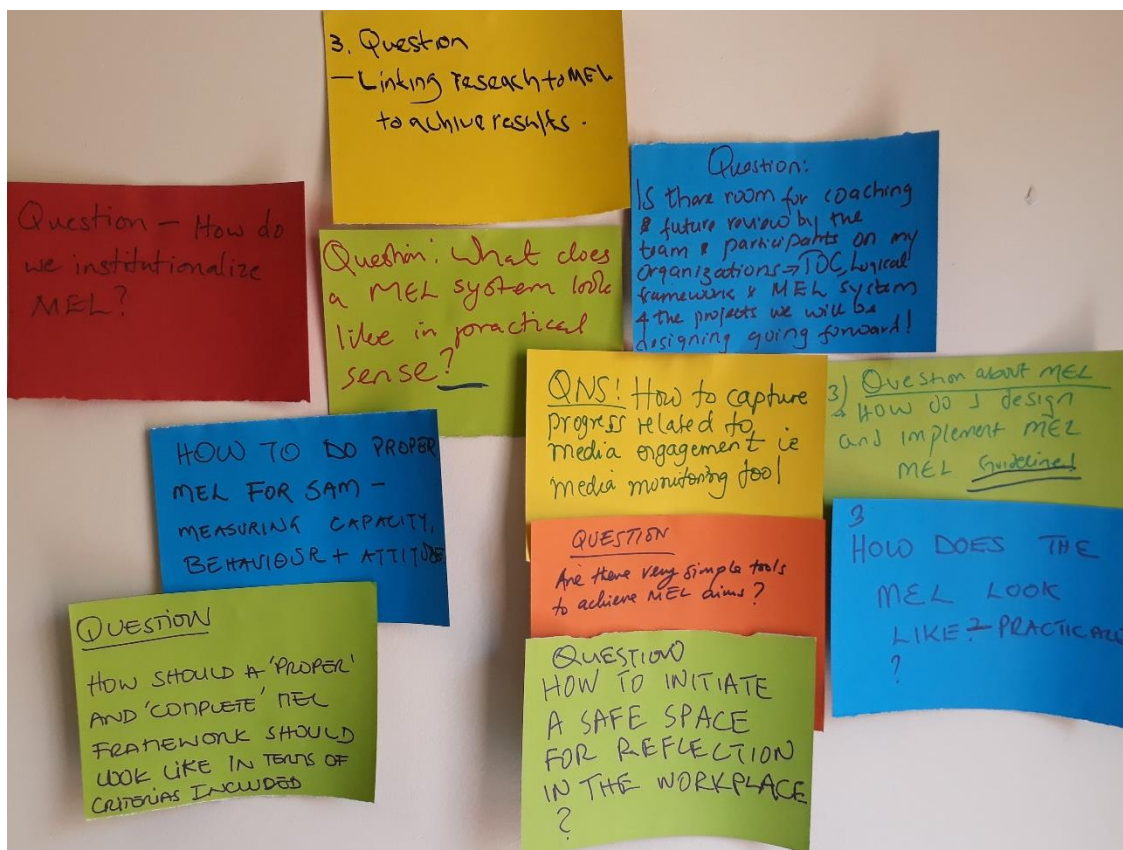 3. Question
- Linking reseach to MEL
to achive results.
Question - How do
we institutionalize
MEL?
Question: What does
a MEL system look
like in practical
sense?
Question:
Is there room for coaching
& future review by the
team & participants on my
Organizations → TOC, Logical
framework & MEL system
4 the projects we will be
designing going forward!
QNS! How to capture
progress related to
media engagement ie
media monitoring tool
3) Question about MEL
HOW do I design
and implement MEL
MEL Guideline!
HOW TO DO PROPER
MEL FOR SAM -
MEASURING CAPACITY,
BEHAVIOUR + ATTITUDE
QUESTION
Are there very simple tools
to achieve MEL aims?
3
HOW DOES THE
MEL LOOK
LIKE? - PRACTICALLY
?
QUESTION
HOW SHOULD A 'PROPER'
AND 'COMPLETE' MEL
FRAMEWORK SHOULD
LOOK LIKE IN TERMS OF
CRITERIAS INCLUDED
QUESTION
HOW TO INITIATE
A SAFE SPACE
FOR REFLECTION
IN THE WORKPLACE
?